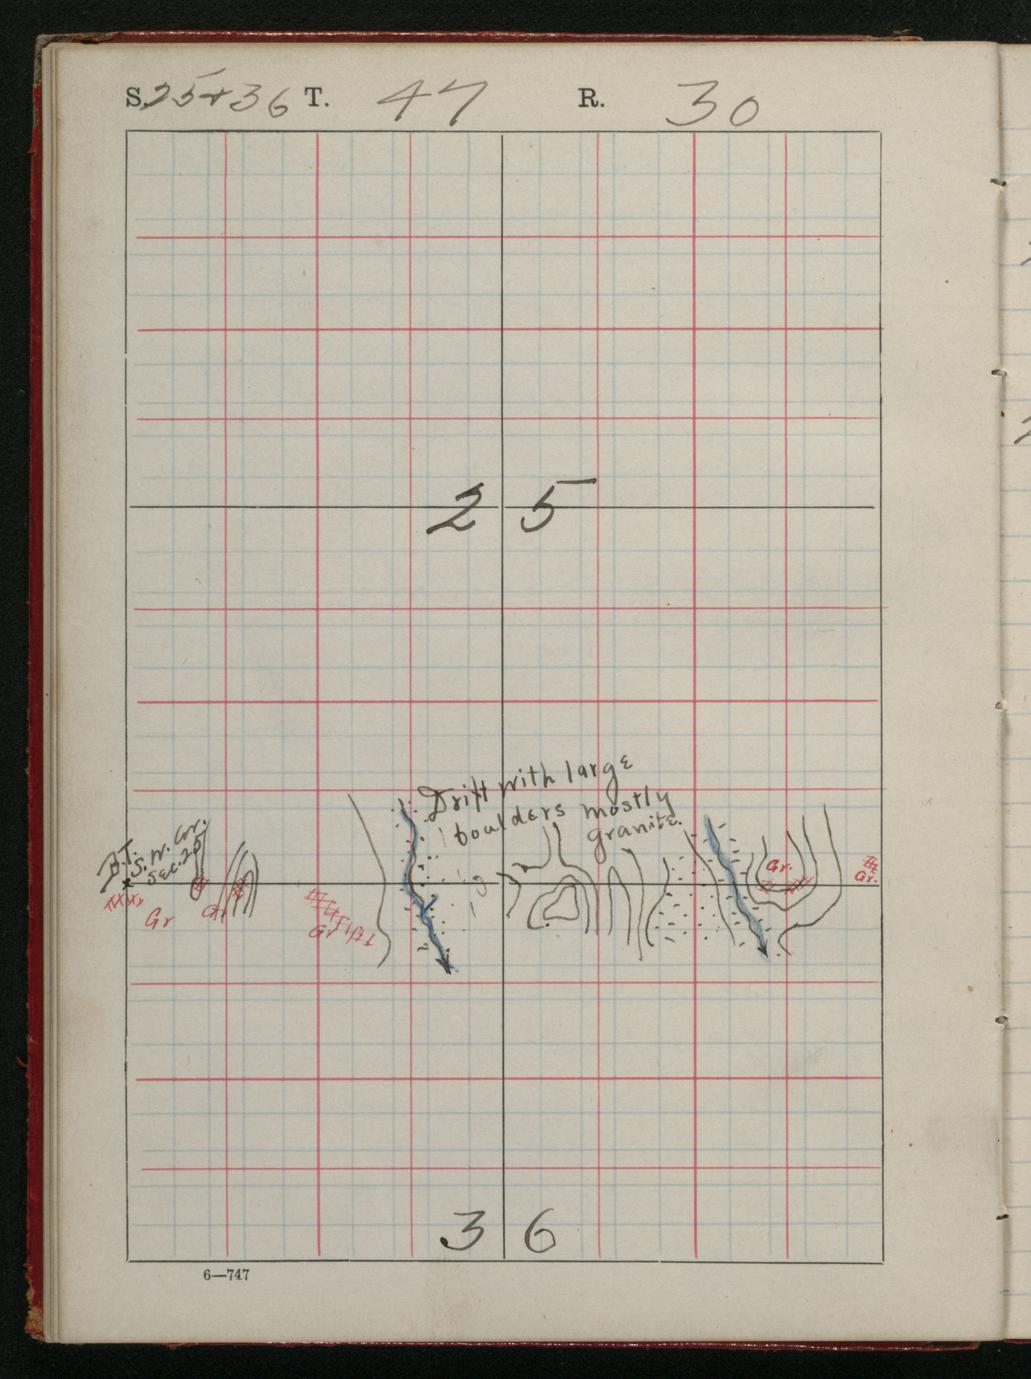 S. 25+36 T. 47 R. 30
25
Drift with large
boulders mostly
granite.
B.T.
S.W. Cor.
Sec. 25
Gr
Gr
Gr
Gr.
Gr.
36
6—747